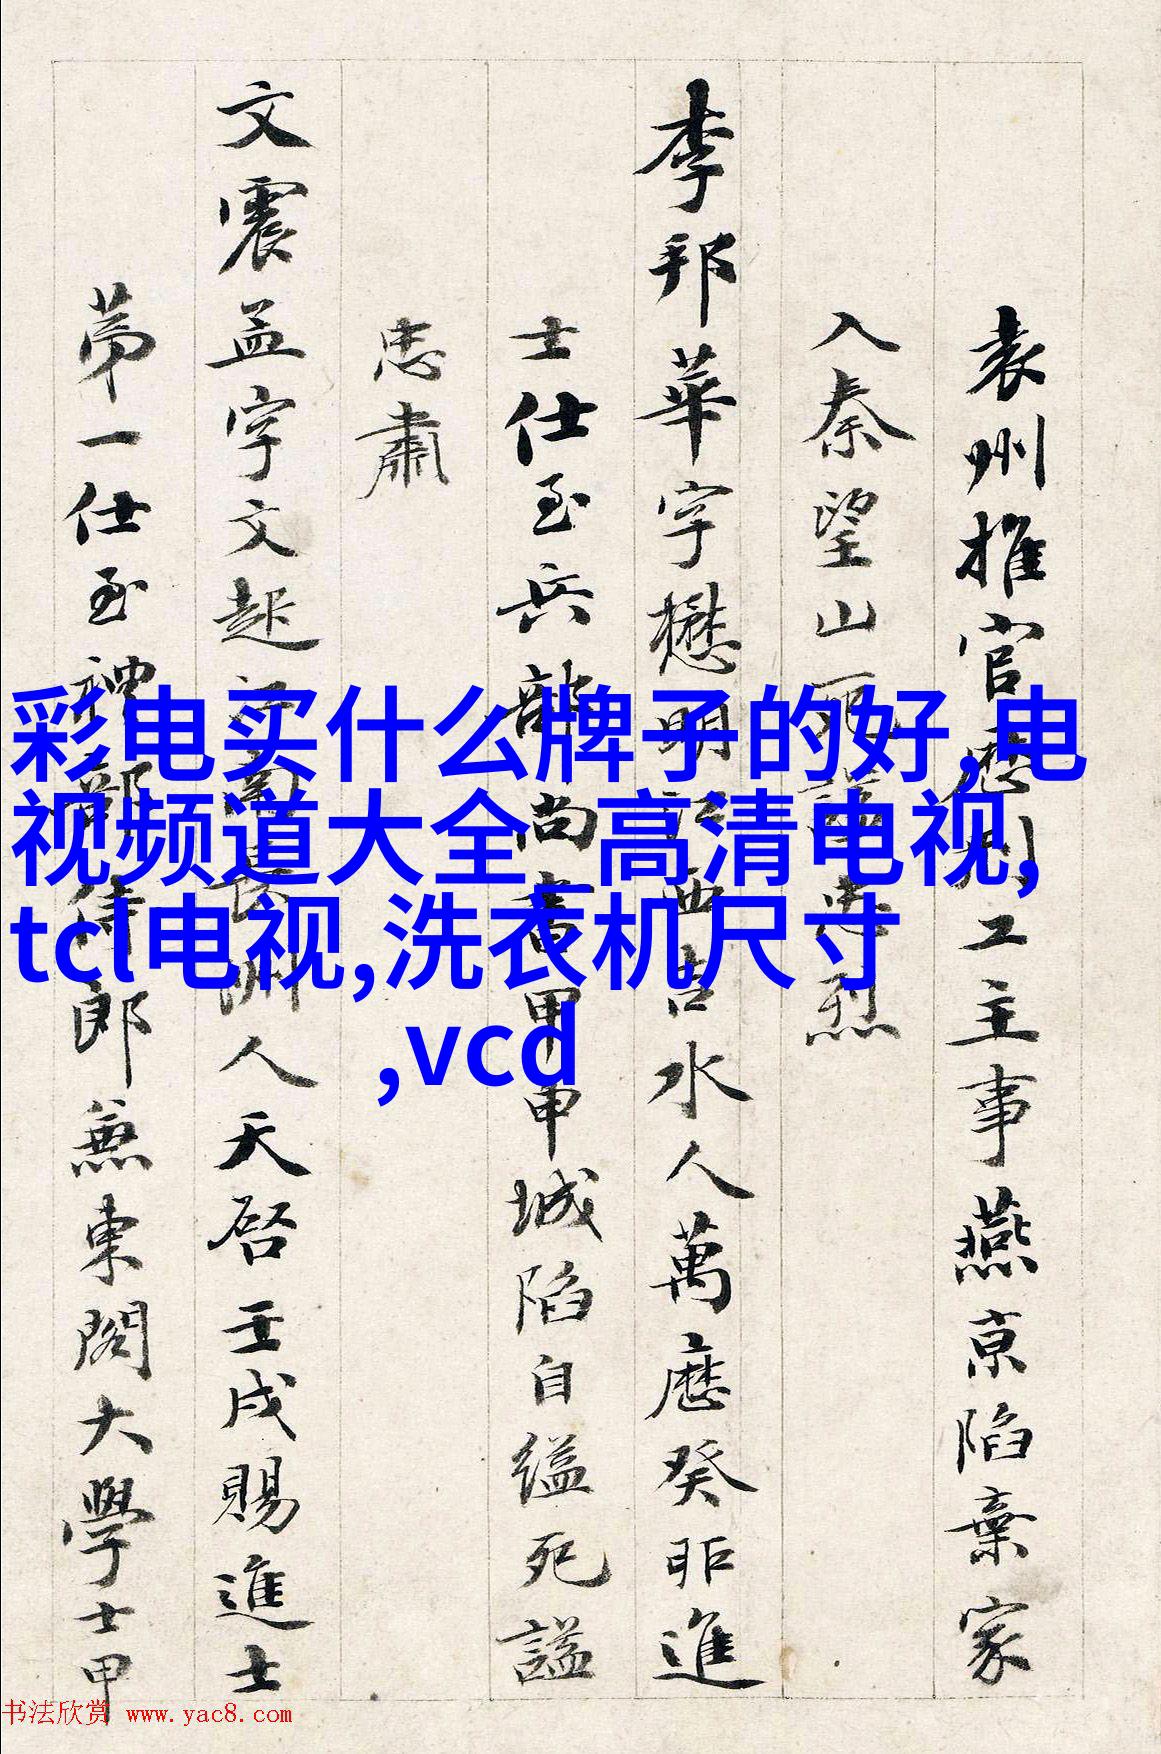 袁州推官歷刑工主事燕京陷棄家
入秦望山死謚忠烈
李邦華字懋明江西吉水人萬歷癸卯進
士仕至兵部尚書甲申城陷自縊死謚
忠肅
文震孟字文起江南長洲人天啓壬戌賜進士
第一仕至禮部侍郎兼東閣大學士甲
彩电买什么牌子的好,电
视频道大全_高清电视,
tcl电视,洗衣机尺寸
,vcd
书法欣赏 www.yac8.com